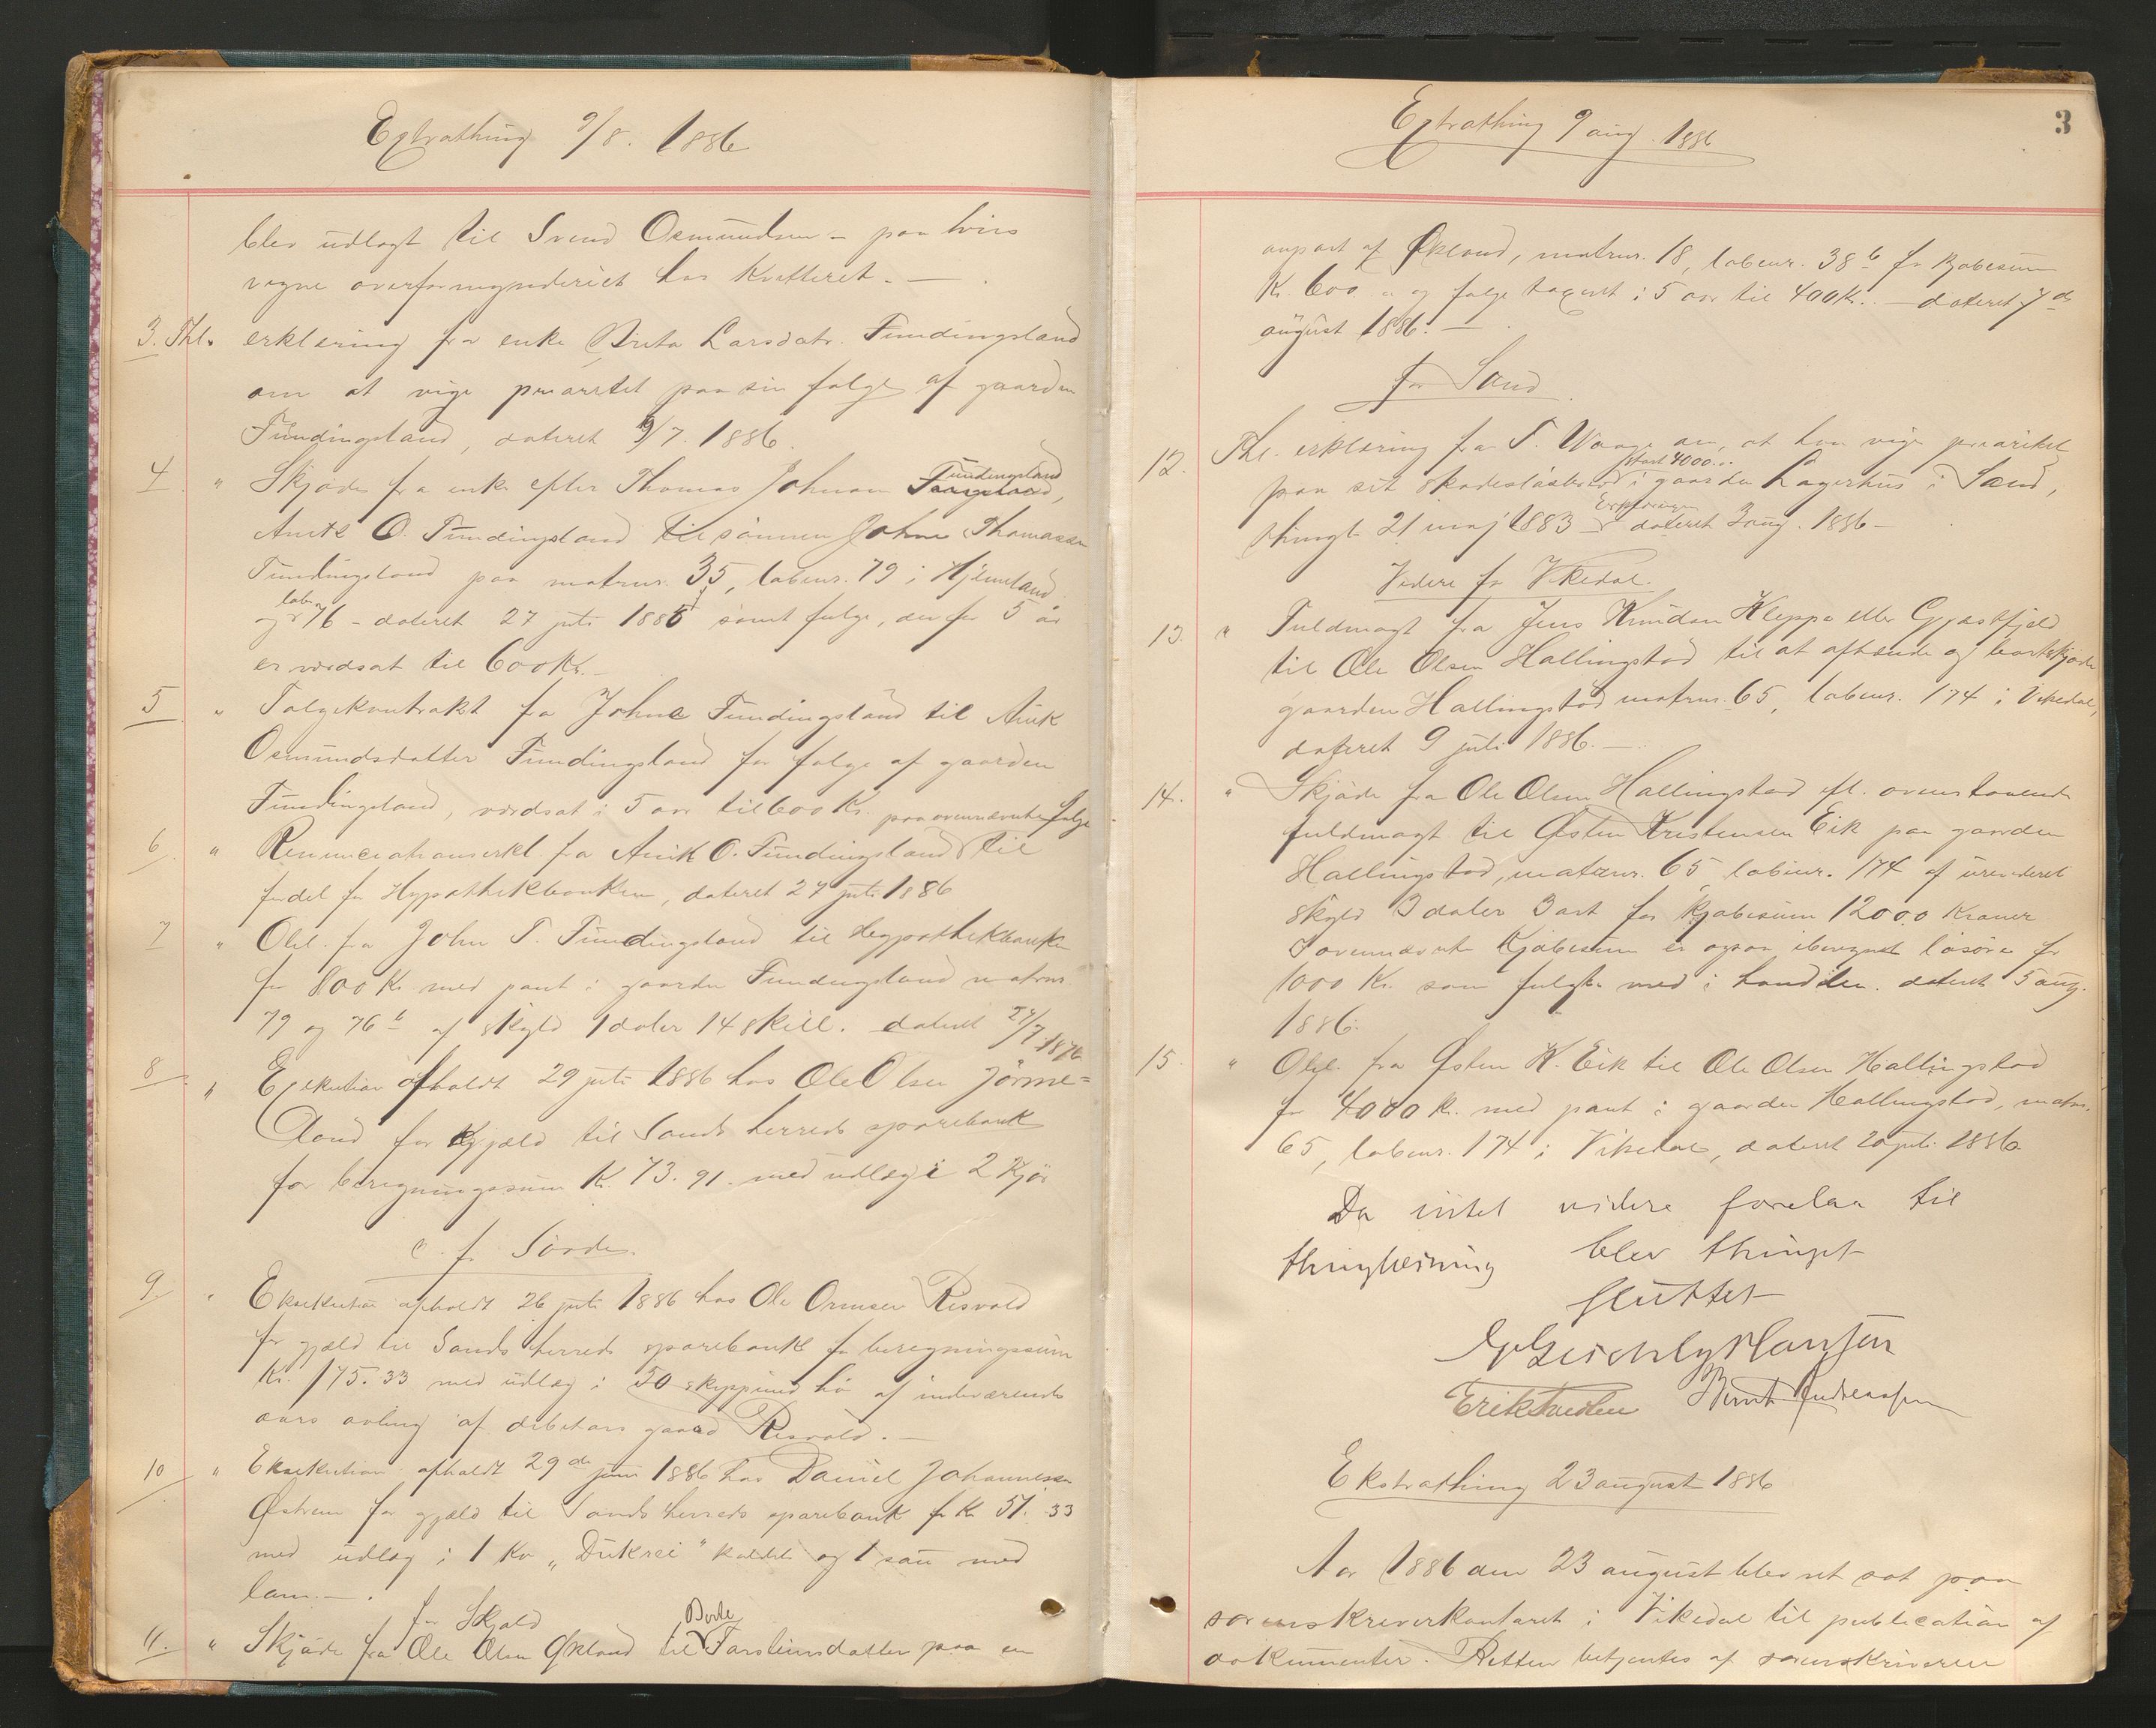 Extrathing 9/8. 1886
blev udlagt til Svend Osmundsen – paa hvis
vegne overformynderiet har kvitteret. –
3. Thl. erklæring fra enke Brita Larsdatr. Fundingsland
om at vige prioritet paa sin folge af gaarden
Fundingsland, dateret 9/7. 1886.
4 " Skjøde fra enke efter Thomas Johnsen Fundingsland,
Anik O. Fundingsland til sønnen Johne Thomassen
Fundingsland paa matrnr. 35, løbenr. 79 i Hjelmeland
og løbenr 76 – dateret 27 juli 1886 samt folge, der for 5 år
er værdsat til 600 Kr. –
5 " Folgekontrakt fra Johne Fundingsland til Anik
Osmundsdatter Fundingsland for folge af gaarden
Fundingsland, værdsat i 5 aar til 600 Kr.
6 " Renunciationserkl. fra Anik O. Fundingsland paa ovennævnte folge til
fordel for Hypothekbanken, dateret 27 juli 1886
7 " Obl. fra John T. Fundingsland til Hypothekbanken
for 800 Kr. med pant i gaarden Fundingsland matrnr
79 og 76 b af skyld 1 daler 14 skill. dateret 27/7 1886
8 " Exekution afholdt 29 juli 1886 hos Ole Olsen Jørme=
land for Gjæld til Sands herreds sparebank
for beregningssum Kr. 73.91. med udlæg i 2 Kjør
c. f. Søvde.
9 " Eksekution afholdt 26 juli 1886 hos Ole Ormsen Risvold
for gjæld til Sands herreds sparebank for beregningssum
Kr. 175.33 med udlæg i 50 skippund hø af indeværende
aars avling af debitors gaard Risvold. –
10 " Eksekution afholdt 29de juni 1886 hos Daniel Johannessen
Østrem for gjæld til Sands herreds sparebank for Kr 51.33
med udlæg i 1 Ko "Dukrei" kaldet og 1 sau med
lam. –
for Skjold
11. " Skjøde fra Ole Olsen Økland til Berte Torsteinsdatter paa en
Extrathing 9 aug. 1886
3
anpart af Økland, matrnr. 18, løbenr. 38 b for Kjøbesum
Kr. 600 og folge taxeret i 5 aar til 400 Kr. – dateret 7de
august 1886. –
for Sand
12. Thl. erklæring fra T. Waage om, at han viger prioritet
paa sit skadesløsbrev stort 4000.. i gaarden Lagerhus i Sand,
thinglt 21 maj 1883 – Erklæringen dateret 3 aug. 1886 –
Videre for Vikedal.
13. " Fuldmagt fra Jens Knudsen Kleppe eller Gjæstfjeld
til Ole Olsen Hallingstad til at afhænde og bortskjøde
gaarden Hallingstad matrnr. 65, løbenr. 174 i Vikedal,
dateret 9 juli 1886. –
14. " Skjøde fra Ole Olsen Hallingstad efl. ovenstaaende
fuldmagt til Østen Kristensen Eik paa gaarden
Hallingstad, matrnr. 65 løbenr. 174 af urevideret
skyld 3 daler 3 ort for kjøbesum 12000 Kroner
I ovennævnte Kjøbesum er ogsaa iberegnet løsøre for
1000 Kr. som fulgte med i handelen. dateret 5 aug.
1886.
15. " Obl. fra Østen K. Eik til Ole Olsen Hallingstad
for 4000 K. med pant i gaarden Hallingstad, matrn.
65, løbenr. 174 i Vikedal, dateret 20 juli 1886.
Da intet videre forelaa til
thinglæsning blev thinget
sluttet
Hansen
Erik Bernt Andreassen
Ekstrathing 23 august 1886
Aar 1886 den 23 august blev ret sat paa
sorenskriverkontoret i Vikedal til publication af
dokumenter. Retten betjentes af sorenskriveren